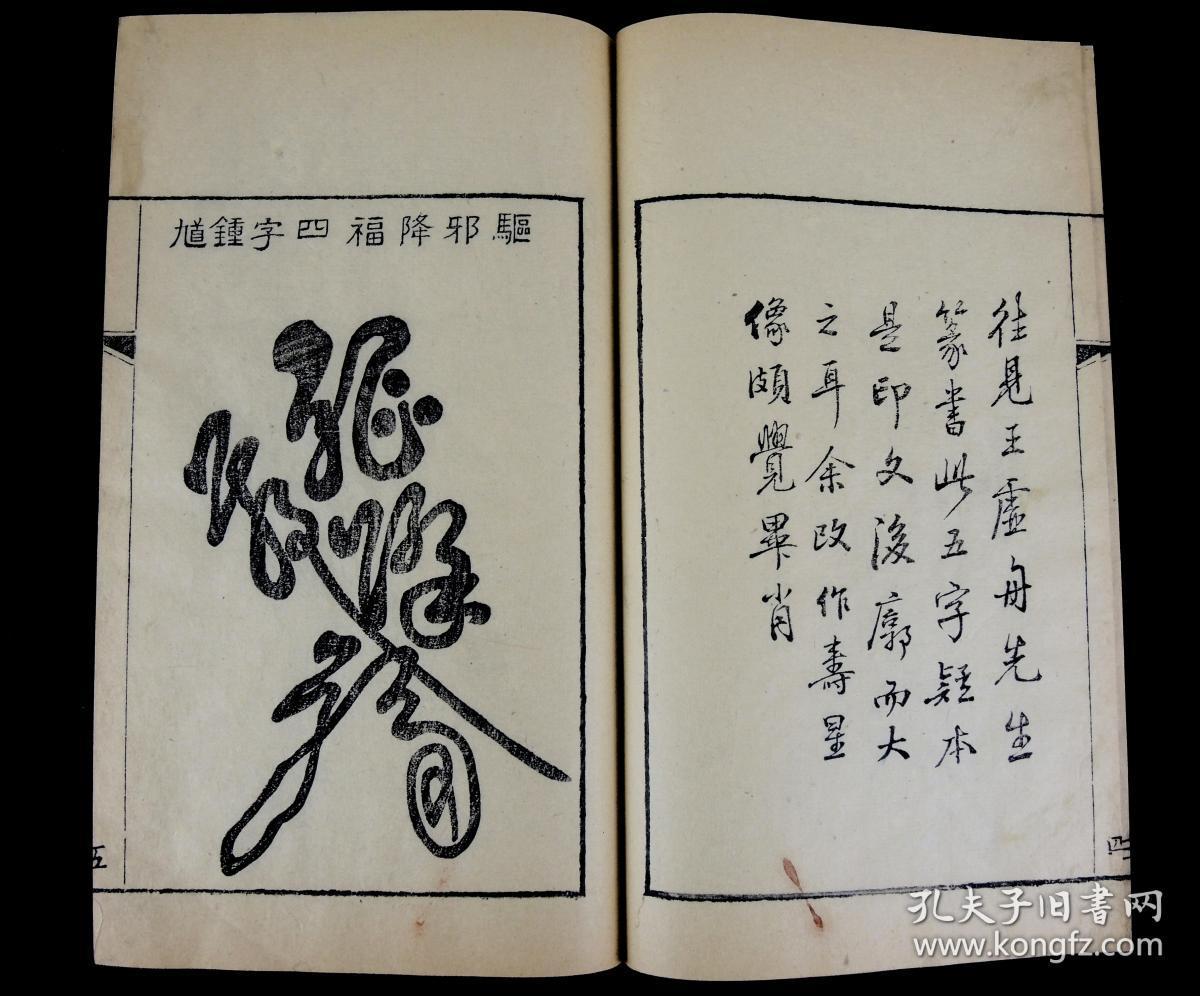 往見王虛舟先生
篆書此五字疑本
是印文後廓而大
之耳余改作壽星
像頗覺畢肖
四
驅邪降福四字鍾馗
五
孔夫子旧書网
www.kongfz.com